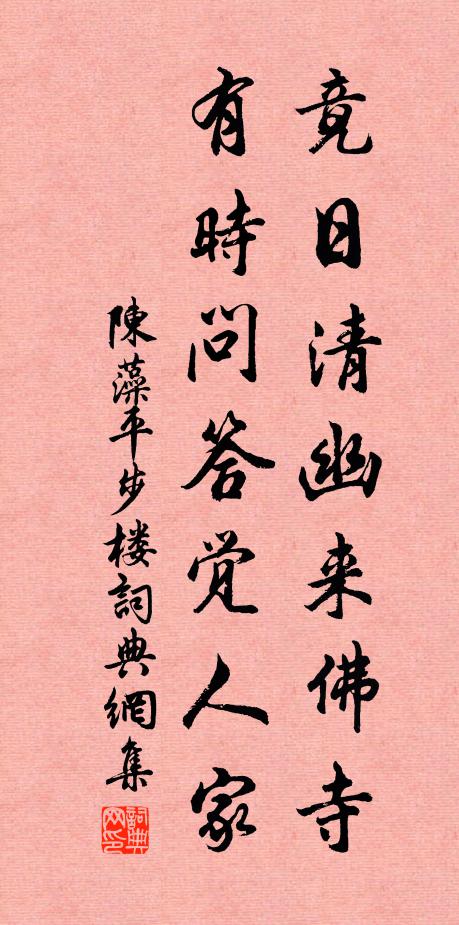 竟日清幽来佛寺
有時问答觉人家
陳藻平步楼詞典網集
詞典网印